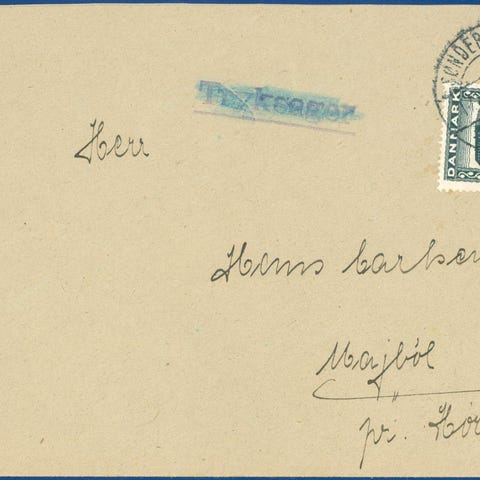 Tryksager
SØNDER
DANMARK
Herr
Hans Carlsen
Majböl
pr. Hör